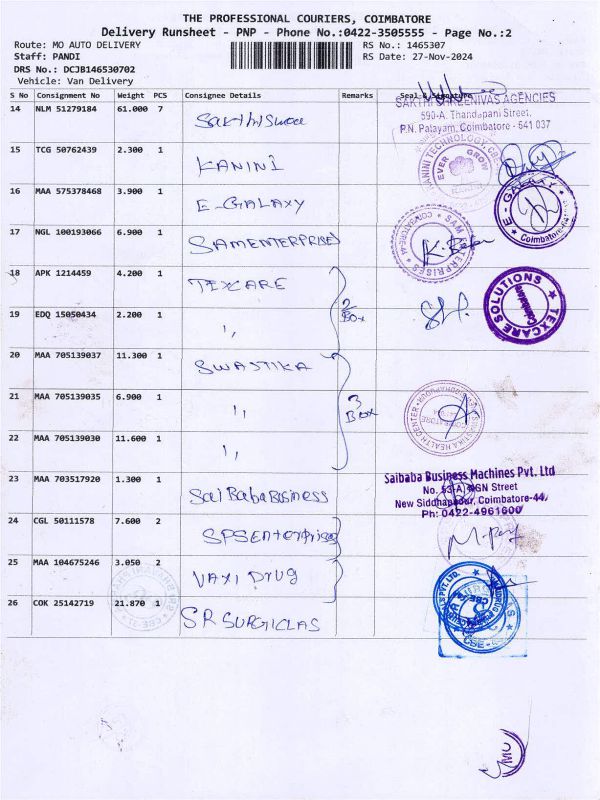 THE PROFESSIONAL COURIERS, COIMBATORE
Delivery Runsheet - PNP - Phone No.:0422-3505555 - Page No.:2
Route: MO AUTO DELIVERY RS No.: 1465307
Staff: PANDI RS Date: 27-Nov-2024
DRS No.: DCJB146530702
Vehicle: Van Delivery
S No Consignment No Weight PCS Consignee Details Remarks Seal & Signature
14 NLM 51279184 61.000 7
SAKTHI SHREENIVAS AGENCIES
590-A, Thandapani Street,
P.N. Palayam, Coimbatore - 641 037
15 TCG 50762439 2.300 1 KANINI EVER GROW
16 MAA 575378468 3.900 1 E-GALAXY E - GALAXY Coimbatore
17 NGL 100193066 6.900 1 SAMENTERPRISES
18 APK 1214459 4.200 1 TEXCARE 2 Box TEXCARE SOLUTIONS Coimbatore
19 EDQ 15050434 2.200 1 ,,
20 MAA 705139037 11.300 1 SWASTIKA 3 Box
21 MAA 705139035 6.900 1 ,, HEALTH CENTER
22 MAA 705139030 11.600 1 ,,
23 MAA 703517920 1.300 1 Sai Baba Business
Saibaba Business Machines Pvt. Ltd
No. 53-A, NGN Street
New Siddhapudur, Coimbatore-44
Ph: 0422-4961600
24 CGL 50111578 7.600 2 SPS Enterprises
25 MAA 104675246 3.050 2 VAXI DRUG
26 COK 25142719 21.870 1 SR SURGICLAS